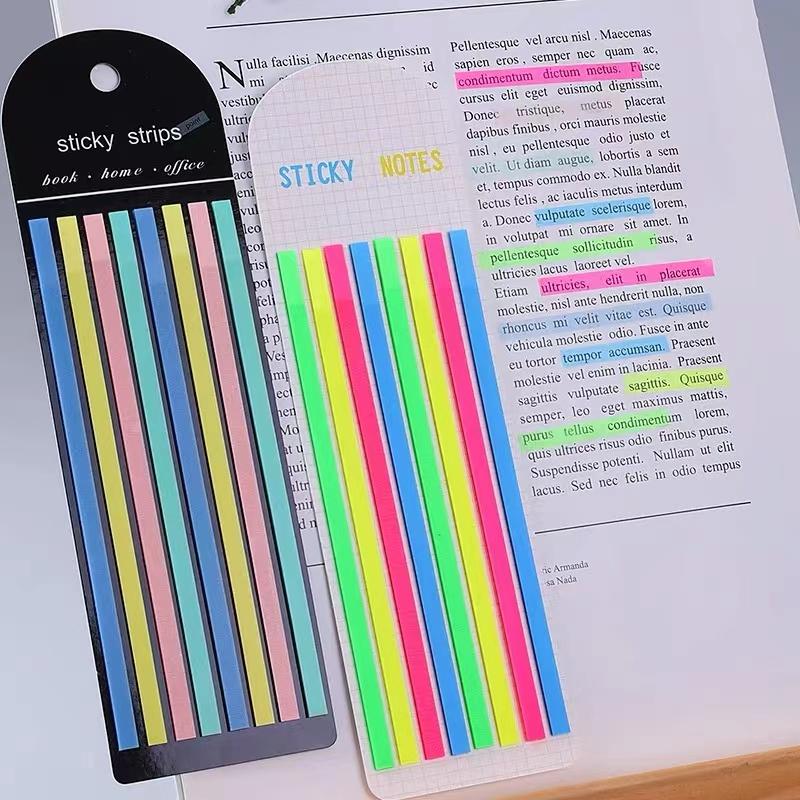 sticky strips
point
book · home · office
STICKY NOTES
Nulla facilisi .Maecenas dignissim
mi
id
vestibu
nec
ultri
just
Pellentesque vel arcu nisl . Maecenas
sapien eros , semper nec quam ac,
condimentum dictum metus. Fusce
cursus elit eget euismod dignissim,
Donec tristique, metus placerat
dapibus finibus , orci mauris molestie
nisl , eu pellentesque odio justo et
velit. Ut diam augue, lobortis a sem
et, tempus commodo ex. Nulla blandit
lectus felis , ac iaculis metus interdum
a. Donec vulputate scelerisque lorem,
in volutpat mi ornare sit amet. In
pellentesque sollicitudin risus, a
ultricies lacus laoreet vel.
Etiam ultricies, elit in placerat
molestie, nisl ante hendrerit nulla, non
rhoncus mi velit vitae est. Quisque
vehicula molestie odio. Fusce in ante
eu tortor tempor accumsan. Praesent
molestie vel enim in lacinia. Praesent
sagittis vulputate sagittis. Quisque
semper, leo eget maximus mattis,
purus tellus condimentum lorem,
quis ultrices risus odio finibus purus.
Suspendisse potenti. Nullam ut elit
lacus. Sed nec felis in odio tempus
ric Armanda
sa Nada